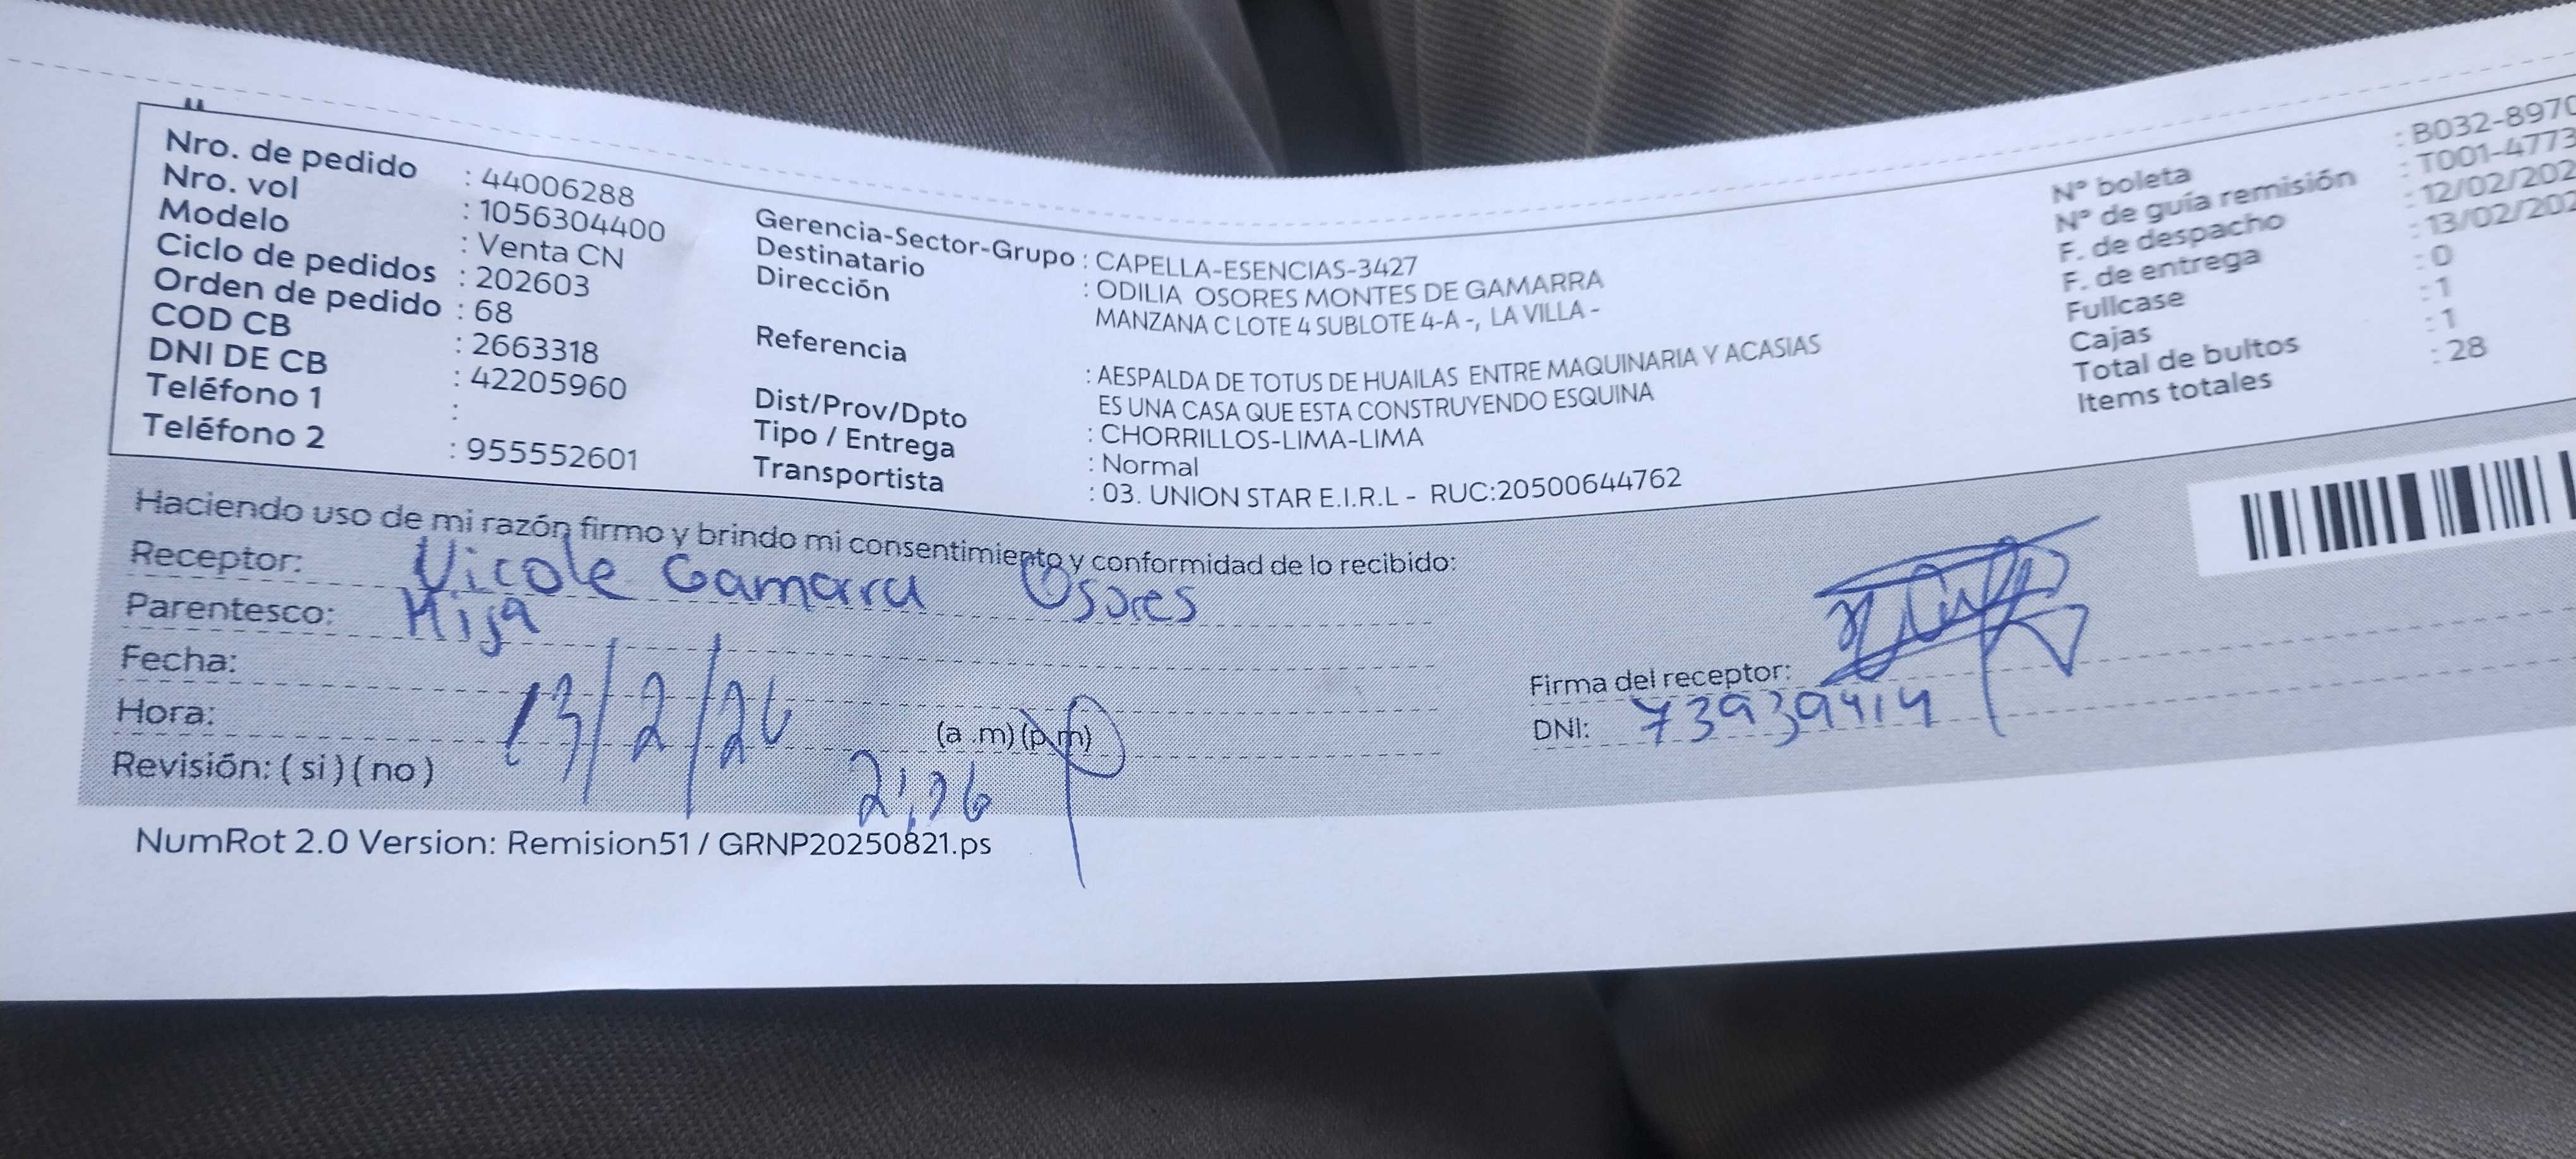 Nro. de pedido : 44006288
Nro. vol : 1056304400
Modelo : Venta CN
Ciclo de pedidos : 202603
Orden de pedido : 68
COD CB : 2663318
DNI DE CB : 42205960
Teléfono 1 :
Teléfono 2 : 955552601
Gerencia-Sector-Grupo : CAPELLA-ESENCIAS-3427
Destinatario : ODILIA OSORES MONTES DE GAMARRA
Dirección MANZANA C LOTE 4 SUBLOTE 4-A -, LA VILLA -
Referencia : AESPALDA DE TOTUS DE HUAILAS ENTRE MAQUINARIA Y ACASIAS
ES UNA CASA QUE ESTA CONSTRUYENDO ESQUINA
Dist/Prov/Dpto : CHORRILLOS-LIMA-LIMA
Tipo / Entrega : Normal
Transportista : 03. UNION STAR E.I.R.L - RUC:20500644762
N° boleta : B032-8970
N° de guía remisión : T001-4773
F. de despacho : 12/02/202
F. de entrega : 13/02/202
Fullcase : 0
Cajas : 1
Total de bultos : 1
Items totales : 28
Haciendo uso de mi razón firmo y brindo mi consentimiento y conformidad de lo recibido:
Receptor: Nicole Gamarra Osores
Parentesco: Hija
Fecha: 13/2/26
Hora: (a .m) (p.m)
Revisión: ( si ) ( no )
Firma del receptor:
DNI: 73939414
NumRot 2.0 Version: Remision51 / GRNP20250821.ps